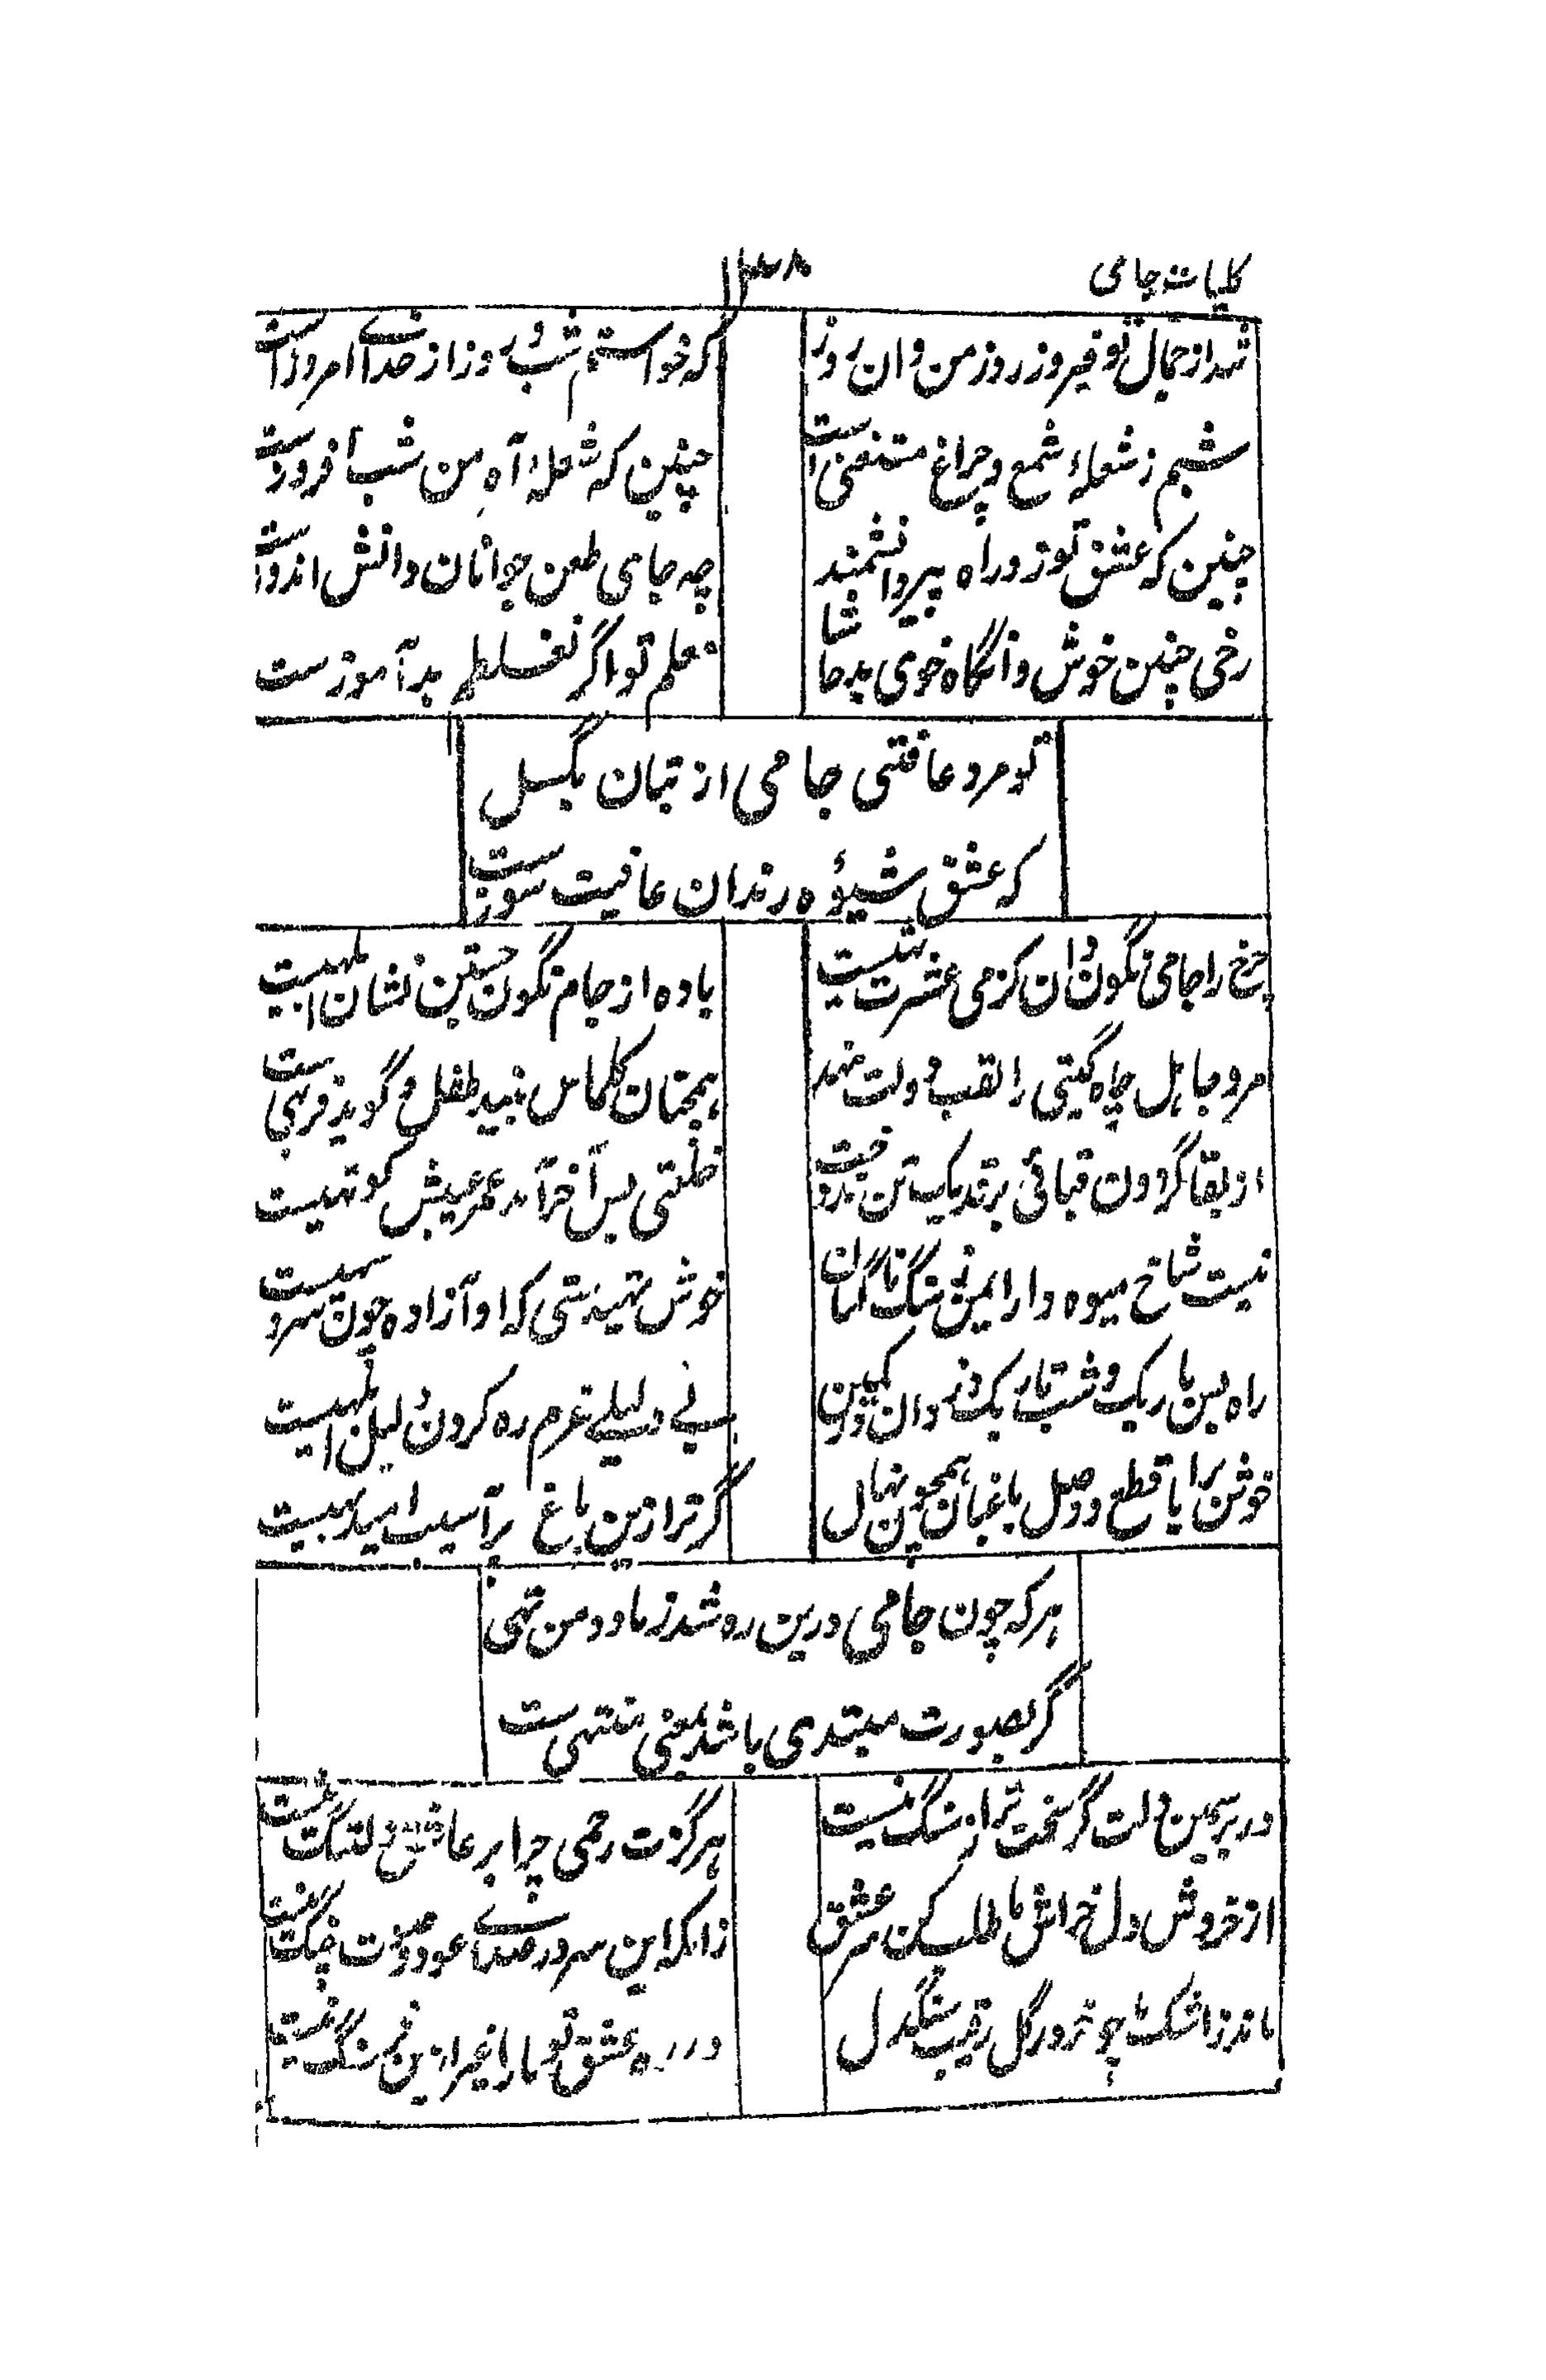 کلیات جامی
۱۳۸
شد از جمال تو فیروز روز من و ان روز
که خواستم شب و روز از خدای امروز است
شبم ز شعلهٔ شمع و چراغ مستغنی است
چنین که شعلهٔ آه من شب افروزست
چنین که عشق تو زد راه پیر دانشمند
چه جای طعن جوانان دانش اندوزست
رخی چنین خوش و انگاه خوی بد حاشا
معلم تو اگر نه غلط بدآموزست
تو مرد عافیتی جامی از بتان بگسل
که عشق شیوهٔ رندان عافیت سوزست
چرخ را جامی نگون دان کز می عشرت تهیست
باده از جام نگون جستن نشان ابلهیست
مرد جاهل چاه گیتی را لقب دولت نهد
همچنان کاماس بیند طفل و گوید فربهی ست
از بقا گردون قبائی بر قد یک تن ندوخت
خلعتی بس آخر آمد عمر عیبش کوتهیست
نیست شاخ میوه دار ایمن ز سنگ ناگهان
خوش تهیدستی که او آزاده چون سرو سهیست
راه بس باریک و شب تاریک و دزدان در کمین
بی دلیلے عزم ره کردن دلیل ابلهیست
خوش برا با قطع و وصل باغبان همچون نهال
گر ترا زین باغ بر آسیب امید بهیست
هر که چون جامی درین ره شد ز ما و من تهی
گر بصورت مبتدی باشد بمعنی منتهی ست
در بر سیمین دلت گر سخت تر از سنگ نیست
هرگزت رحمی چرا بر عاشق دلتنگ نیست
از خروش دل خراش ما طلب کن سر عشق
زانکه این سر در صدای عود و صوت چنگ نیست
ماند ز اشک ما چو خر در گل رقیب سنگدل
در ره عشق تو ما را غیر ازین خرسنگ نیست